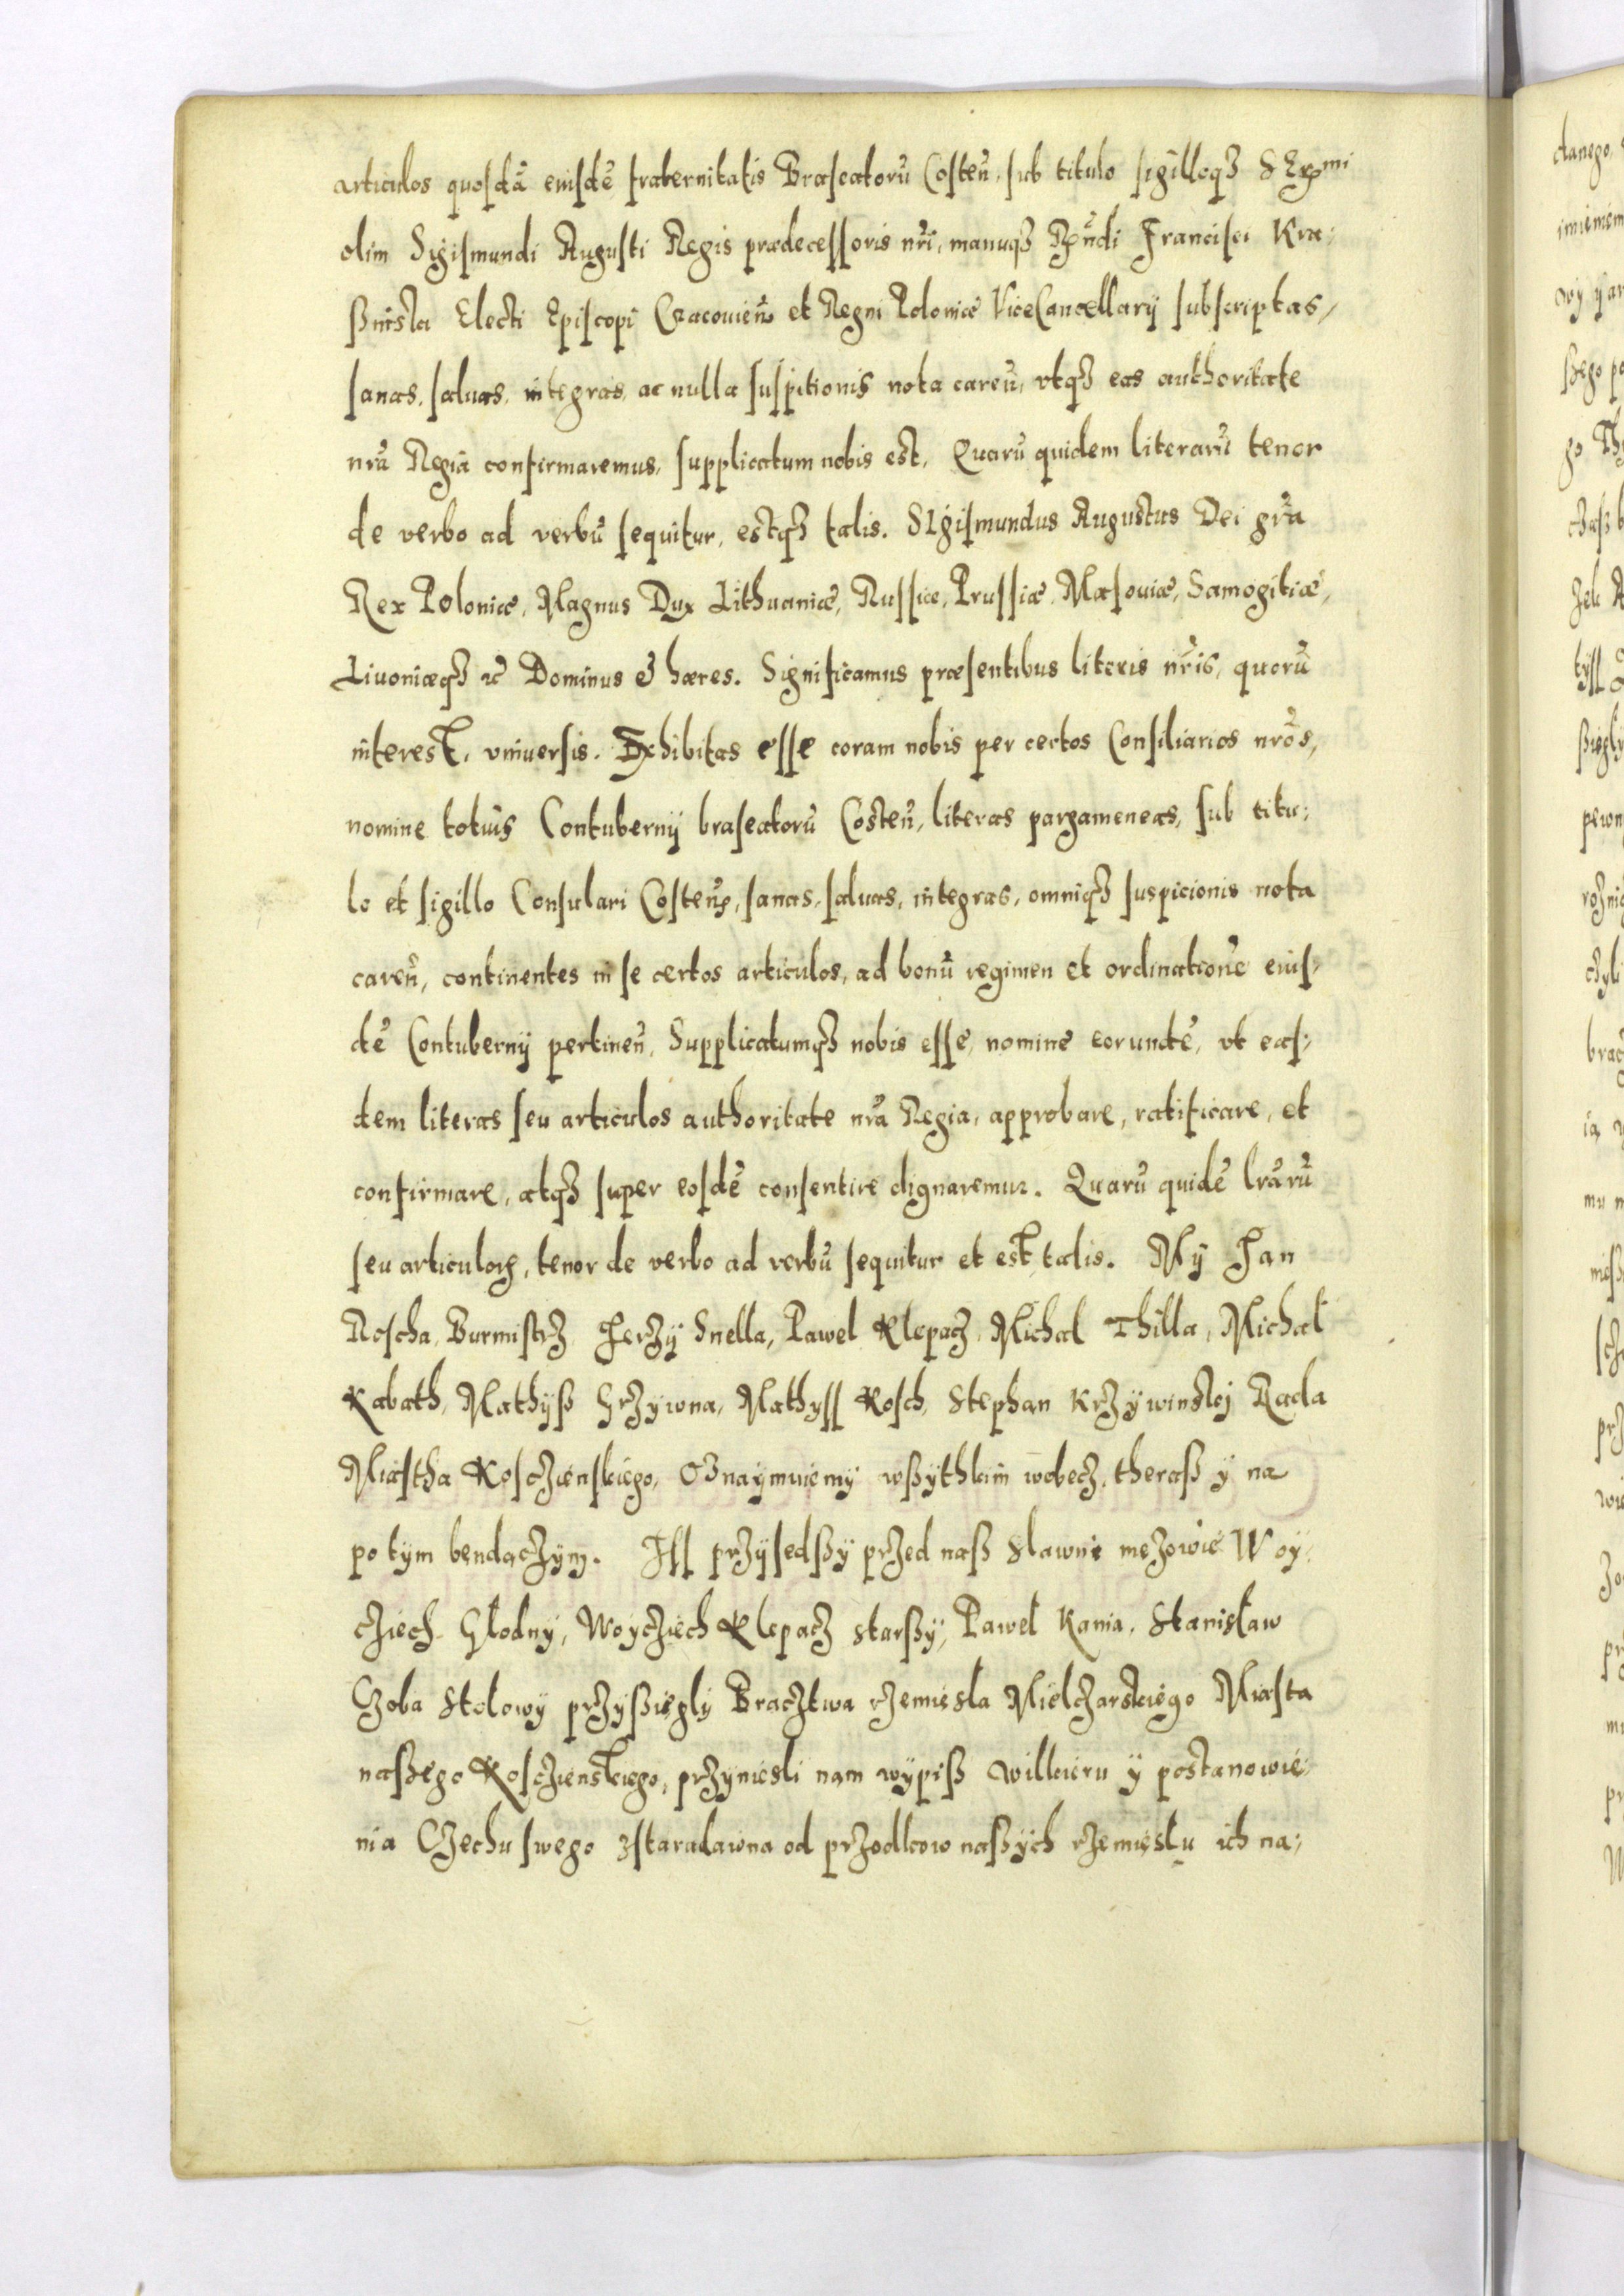 articulos quosdã eiusdẽ fraternitatis Braseatorũ Costeñ. sub titulo sigilloqꝫ SExmi
olim Sigismundi Augusti Regis prædecessoris nr̃i, manuqꝫ Rñdi Francisci Kra:
ßinski Electi Episcopi Cracovieñ et Regni Poloniæ ViceCancellarij subscriptas,
sanas, saluas, integras, ac nulla suspitionis nota careñ, vtqꝫ eas authoritate
nr̃a Regiã confirmaremus, supplicatum nobis est. Quarũ quidem literarũ tenor
de verbo ad verbũ sequitur, estqꝫ talis. SIgismundus Augustus Dei gr̃a
Rex Poloniæ, Magnus Dux Lithuaniæ, Russiæ, Prussiæ, Masouiæ, Samogitiæ,
Liuoniæqꝫ ꝛc̃ Dominus & hæres. Significamus præsentibus literis nr̃is, quorũ
interest, vniuersis. Exhibitas esse coram nobis per certos Consiliarios nr̃os,
nomine totius Contubernij braseatorũ Costeñ, literas pargameneas, sub titu:
lo et sigillo Consulari Costeñ, sanas, saluas, integras, omniqꝫ suspicionis nota
careñ, continentes in se certos articulos, ad bonũ regimen et ordinationẽ eius:
dẽ Contubernij pertineñ, Supplicatumqꝫ nobis esse, nomine eorundẽ, vt eas:
dem literas seu articulos authoritate nr̃a Regia, approbare, ratificare, et
confirmare, atqꝫ super eosdẽ consentire dignaremur. Quarũ quidẽ lr̃arũ
seu articuloꝝ, tenor de verbo ad verbũ sequitur et est talis. My Jan
Roscha, Burmistrz Jerzy Snella, Pawel Klepacz, Michal Thilla, Michał
Kabath, Mathyß Grzywna, Mathyss Kosch, Stephan Krzywinskj Rada
Miastha Kosczienskiego, Oznaymuiemy wßythkim wobecz, theraß y na
potym bendaczym. Iss przysedßy przed naß sławni mezowie Woy:
cziech Głodny, Woycziech Klepacz starßy, Paweł Kania, Stanisław
Czoba Stolowy przyßiegly Bracztwa rzemiesla Mielczarskiego Miasta
naßego Kosczienskiego, przyniesli nam wypiß Willkieru y postanowie:
nia Czechu swego zstaradawna od przodkow naßych rzemiesłu ich na: